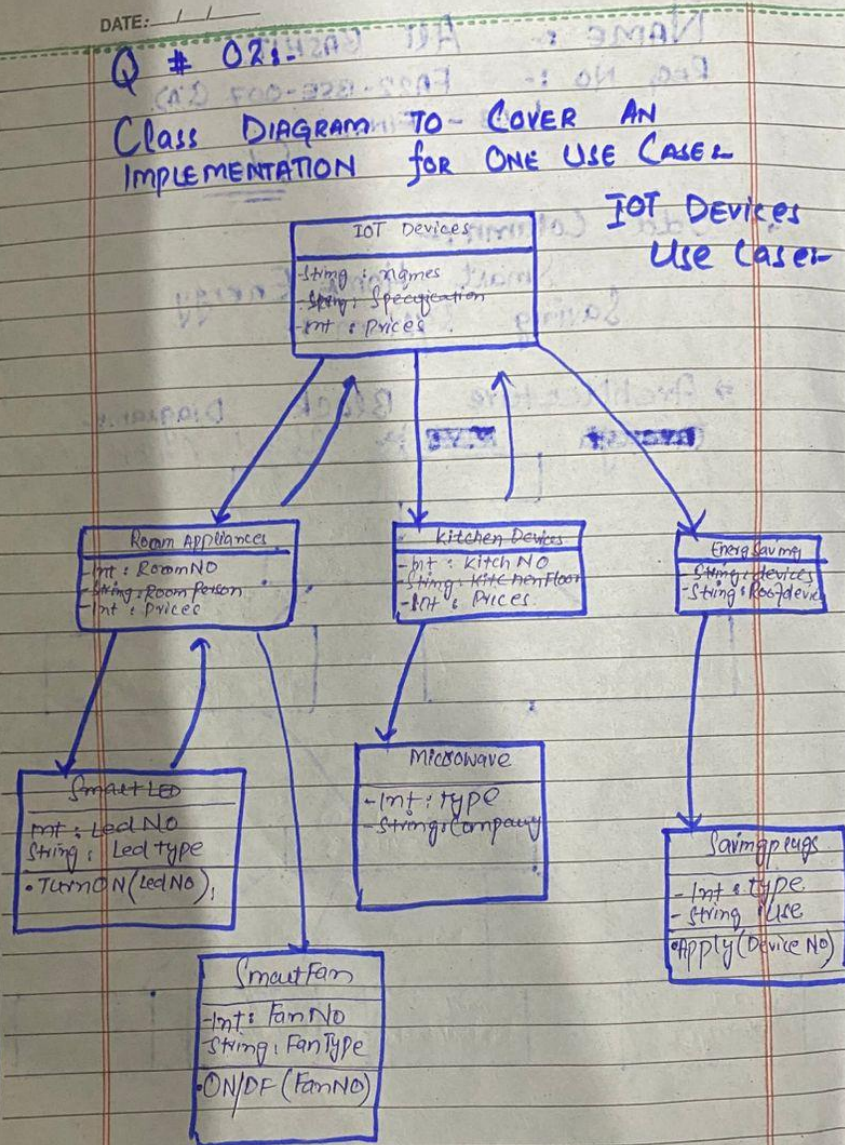 DATE: / /
Q # 02:-
Class DIAGRAM TO COVER AN
IMPLEMENTATION for ONE USE CASE:-
IOT Devices
Use Case:-
IOT Devices
-String : names
-String : Specification
-Int : Prices
Room Appliances
-Int : Room NO
-String : Room Person
-Int : Prices
Kitchen Devices
-Int : Kitch NO
-String : Kitchen Floor
-Int : Prices
Energ Saving
-String : devices
-String : Roofdevic
Smart LED
Int : Led No
String : Led type
• Turn ON (Led No)
Microwave
-Int : type
-String : Company
Saving plugs
- Int : type
- String : Use
• Apply (Device No)
Smart Fan
-Int : Fan No
String : Fan Type
• ON/OF (Fan NO)